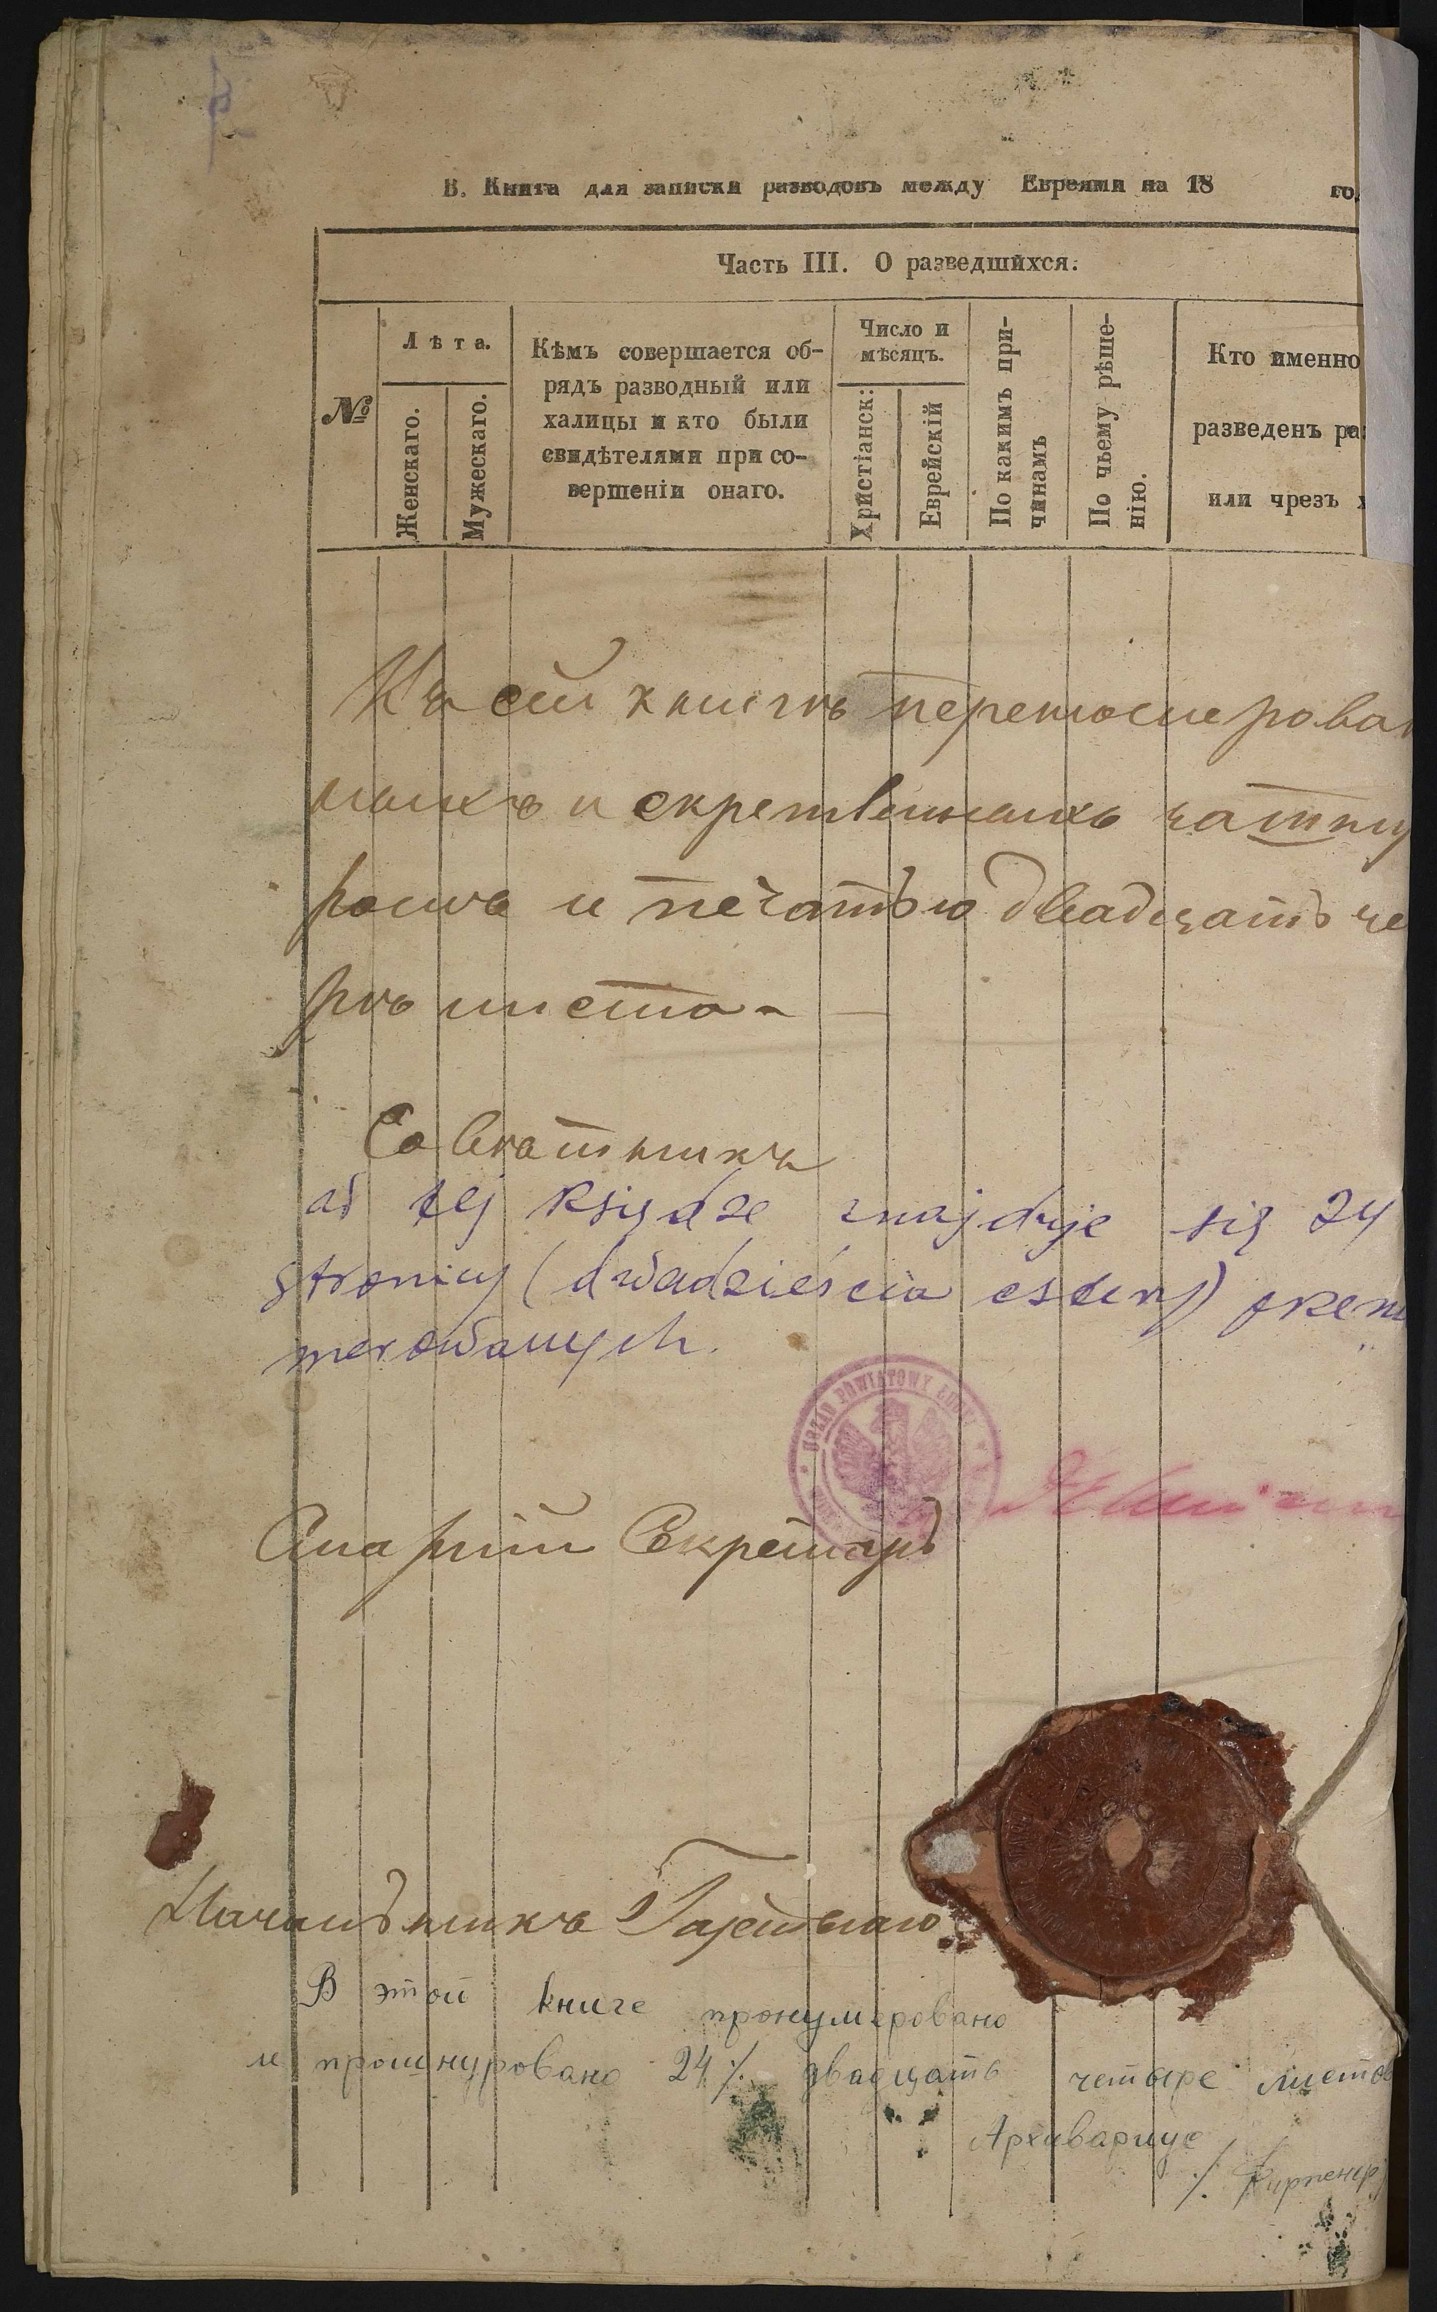 В. Книга для записки разводовъ между Евреями на 18 го
Часть III. О разведшихся.
№
Лѣта.
Женскаго.
Мужескаго.
Кѣмъ совершается об-
рядъ разводный или
халицы и кто были
свидѣтелями при со-
вершеніи онаго.
Число и
мѣсяцъ.
Христіанск:
Еврейскій
По какимъ при-
чинамъ
По чьему рѣше-
нію.
Кто именно
разведенъ ра
или чрезъ х
Въ сей книгѣ перенумерован
ныхъ и скрепленныхъ
и печатью двадцать че
рѣ листа
Совѣтникъ
tej księdze znajduje się 24
stronicy (dwadzieścia cztery)
merowanych.
URZĄD POWIATOWY
Старшій Секретарь
Начальникъ
В этой книге пронумеровано
и прошнуровано 24 /. двадцать четыре листов
Архивариус